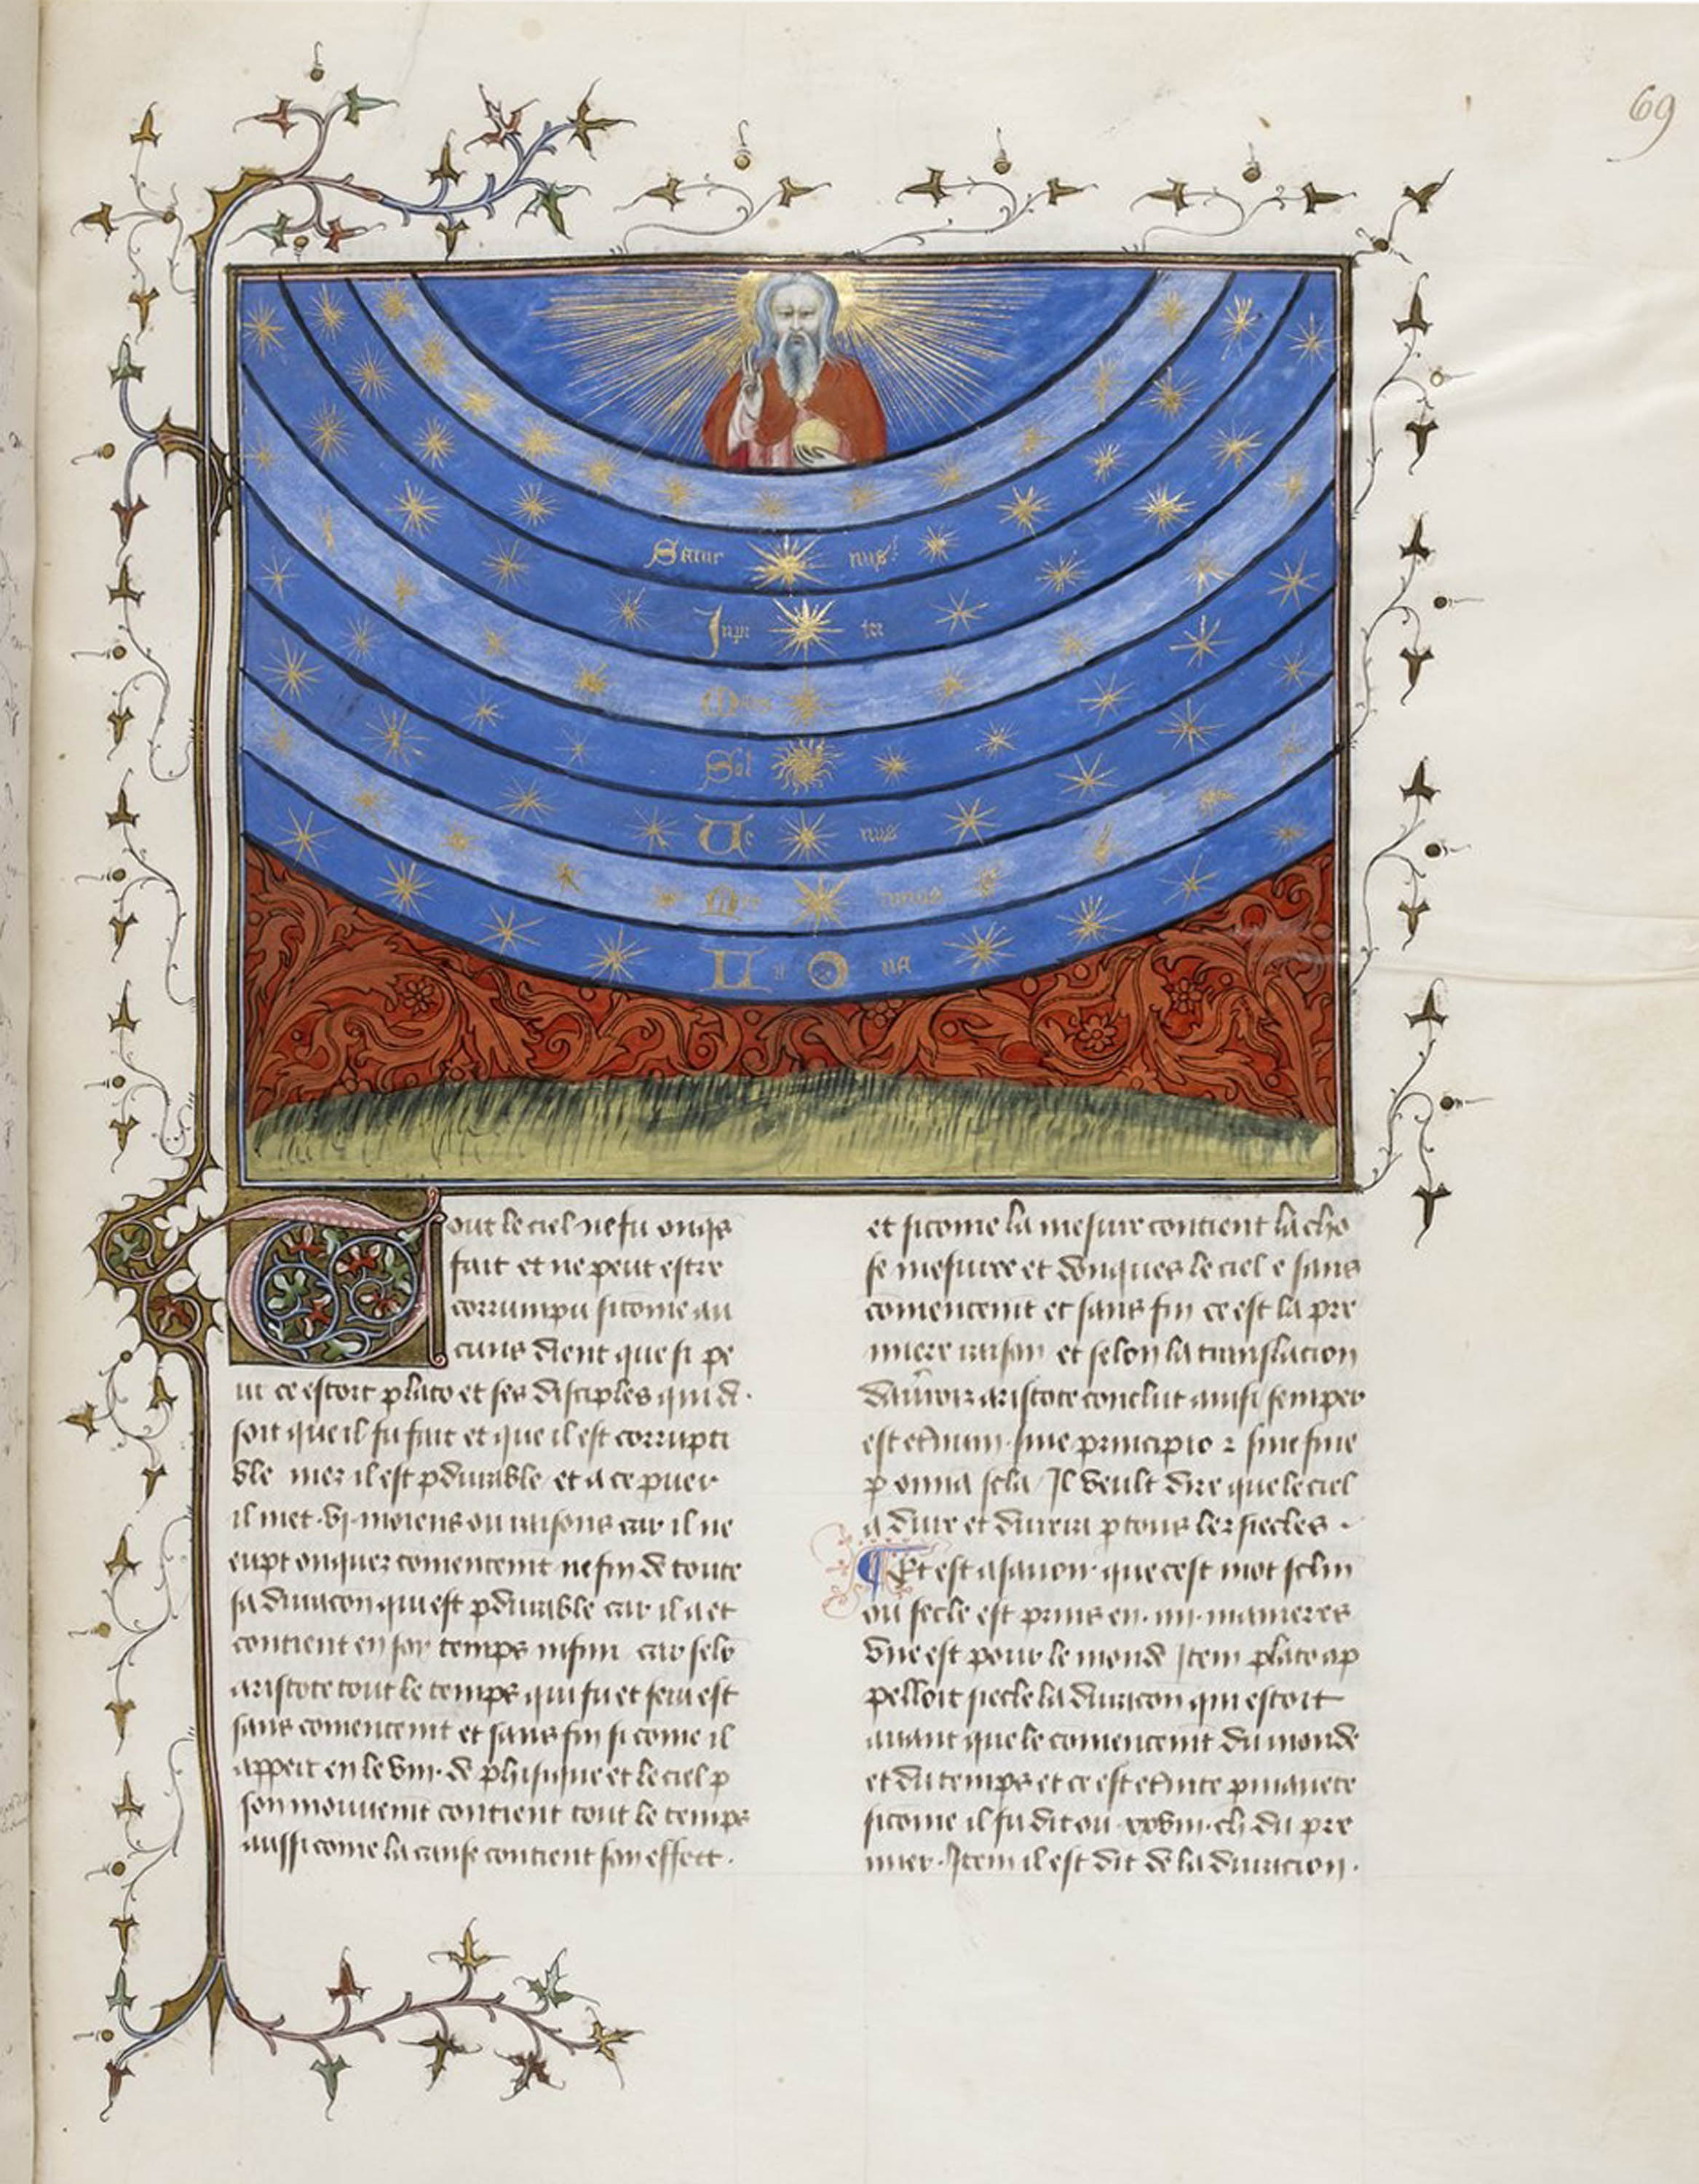 69
Satur nus
Jupi ter
Mars
Sol
Ve nus
Mer curius
Lu na
Tout le ciel ne fu onqs
fait et ne peut estre
corrumpu sicome au
cuns dient que si pe
ut ce estoit plato et ses disciples qui di
soit que il fu fait et que il est corrupti
ble mez il est pdurable et a ce puer
il met .vi. moiens ou raisons car il ne
eupt onquez comencemt ne fin de toute
sa duracon qui est pdurable car il a et
contient en soy temps infini car selo
aristote tout le temps qui fu et sera est
sans comencemt et sans fin sicome il
appert en le viii. de phisique et le ciel p
son mouvemt contient tout le temps
aussi come la cause contient son effect.
et sicome la mesure contient la cho
se mesuree et donques le ciel e sans
comencemt et sans fin ce est la pre
miere raison et selon la translacion
aristote conclut ainsi semper
est etnum sine principio z sine fine
p omia scla Il veult dire que le ciel
a dure et durera p tous lez siecles.
¶ Et est a savoir que cest mot sclm
ou secle est prins en .iiii. manieres
Une est pour le monde Item plato ap
pelloit siecle la duracon qui estoit
avant que le comencemt du monde
et du temps et ce est etnite
sicome il fu dit ou xxviii. ch. du pre
mier. Item il est dit de la duracion.